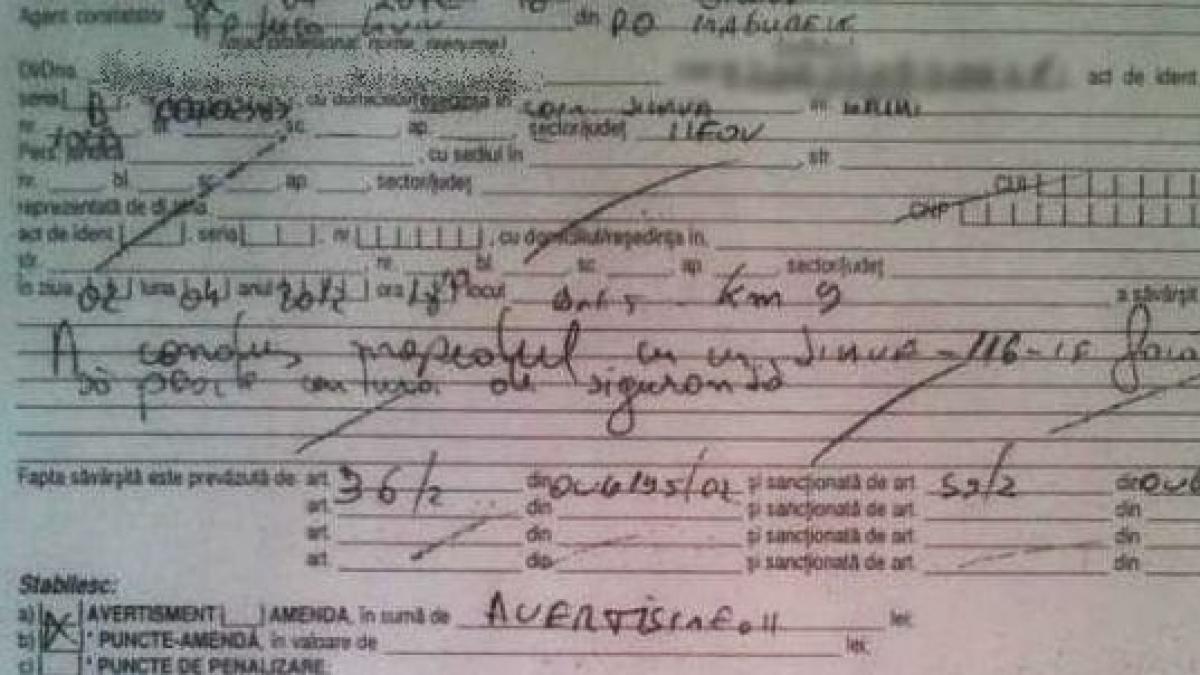 Agent constatator din PO MAGURELE
(grad profesional, nume, prenume)
Dl/Dna act de ident
seria B , cu domiciliul/reşedinţa în com JILAVA str.
nr. sc. ap. sector/judeţ ILFOV
Pers. juridică , cu sediul în , str.
nr. bl. sc. ap. , sector/judeţ CUI
reprezentată de dl./dna. CNP
act de ident , seria , nr. , cu domiciliul/reşedinţa în,
str. , nr. bl. sc. ap. sector/judeţ
în ziua 02 luna 04 anul 2012 ora locul Km 9 a săvârşit
A condus cu nr. JILAVA-116-IF fara
sa poarte centura de siguranta
Fapta săvârşită este prevăzută de: art. 36/2 din OUG 195/02 şi sancţionată de art. din OUG
art. din şi sancţionată de art. din
art. din şi sancţionată de art. din
art. din şi sancţionată de art. din
Stabilesc:
a) X AVERTISMENT AMENDA, în sumă de AVERTISMENT lei;
b) * PUNCTE-AMENDĂ, în valoare de lei;
c) * PUNCTE DE PENALIZARE.